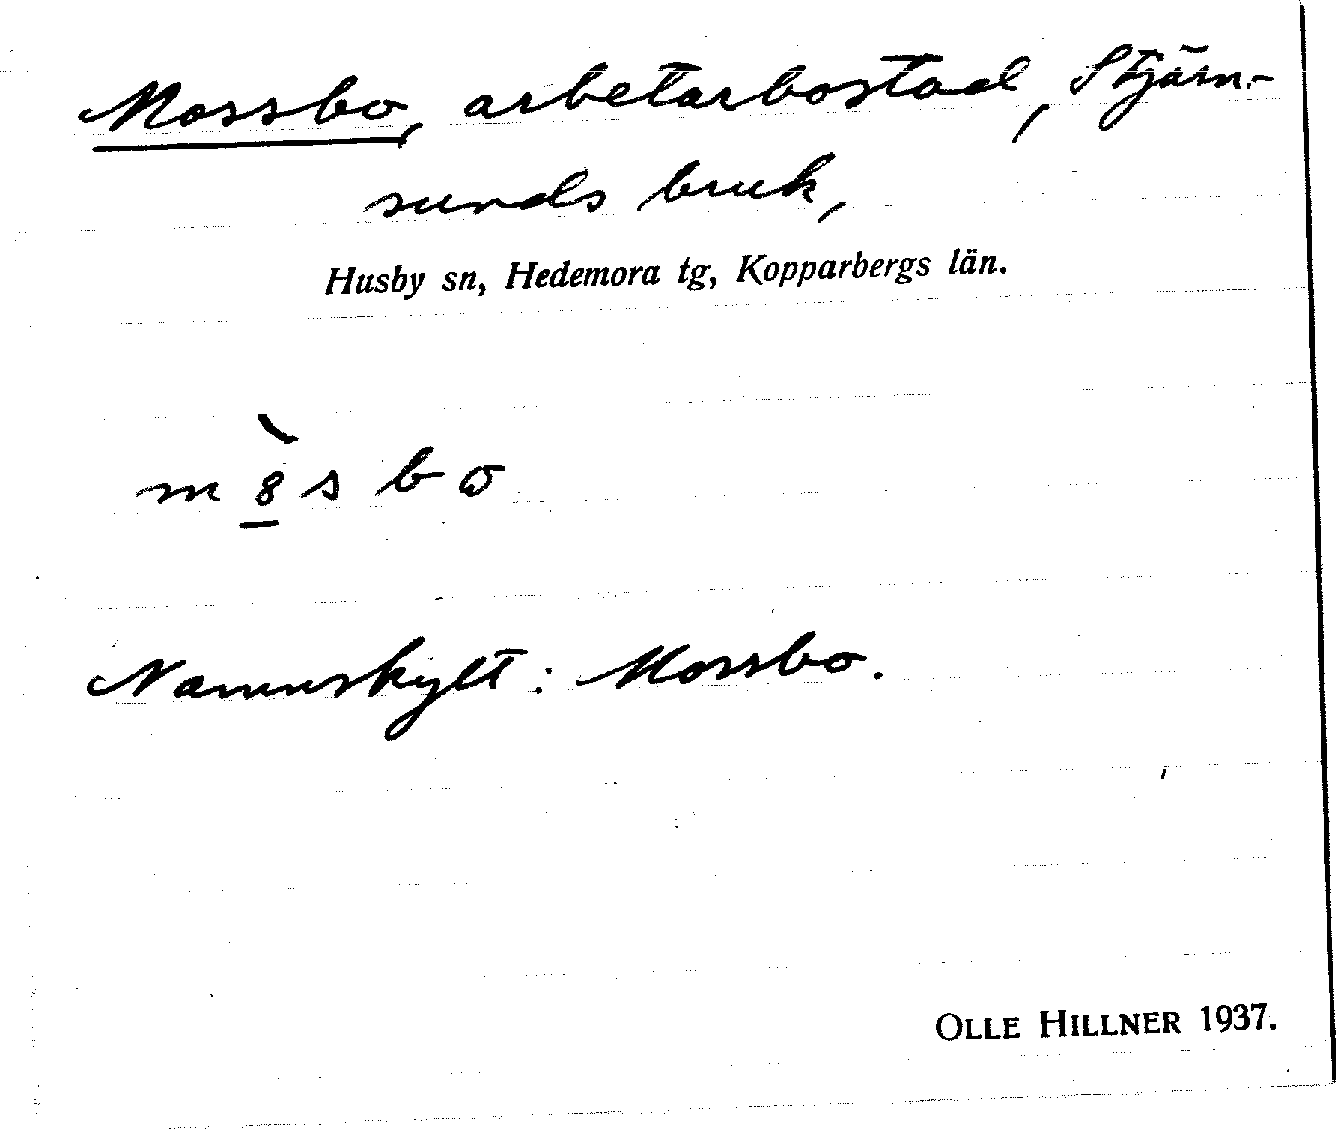 Mossbo, arbetarbostad, Stjärn-
sunds bruk,
Husby sn, Hedemora tg, Kopparbergs län.
m 8̲̀ s b ω
Namnskylt: Mossbo.
OLLE HILLNER 1937.